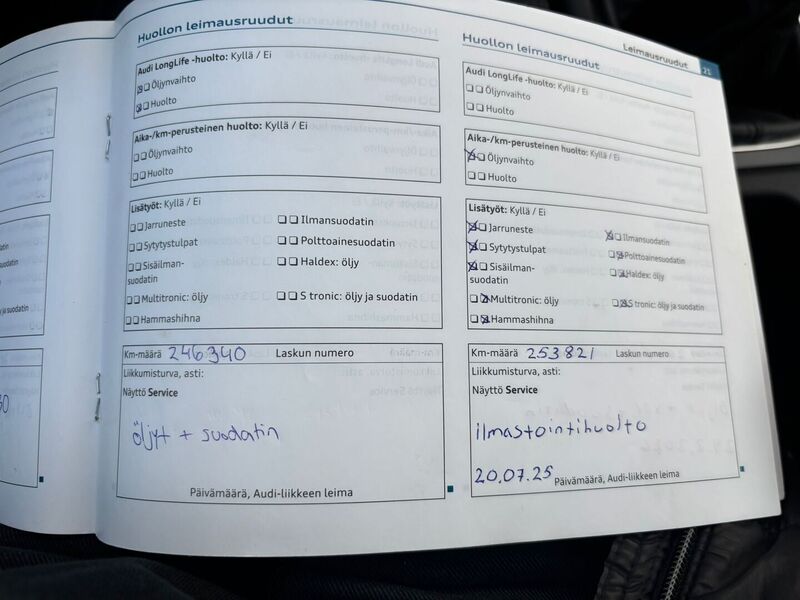 Huollon leimausruudut
Audi LongLife -huolto: Kyllä / Ei
Öljynvaihto
Huolto
Aika-/km-perusteinen huolto: Kyllä / Ei
Öljynvaihto
Huolto
Lisätyöt: Kyllä / Ei
Jarruneste
Ilmansuodatin
Sytytystulpat
Polttoainesuodatin
Sisäilman-
suodatin
Haldex: öljy
Multitronic: öljy
S tronic: öljy ja suodatin
Hammashihna
Km-määrä 246340 Laskun numero
Liikkumisturva, asti:
Näyttö Service
öljyt + suodatin
Päivämäärä, Audi-liikkeen leima
Leimausruudut 21
Huollon leimausruudut
Audi LongLife -huolto: Kyllä / Ei
Öljynvaihto
Huolto
Aika-/km-perusteinen huolto: Kyllä / Ei
Öljynvaihto
Huolto
Lisätyöt: Kyllä / Ei
Jarruneste
Ilmansuodatin
Sytytystulpat
Polttoainesuodatin
Sisäilman-
suodatin
Haldex: öljy
Multitronic: öljy
S tronic: öljy ja suodatin
Hammashihna
Km-määrä 253821 Laskun numero
Liikkumisturva, asti:
Näyttö Service
ilmastointihuolto
20.07.25 Päivämäärä, Audi-liikkeen leima